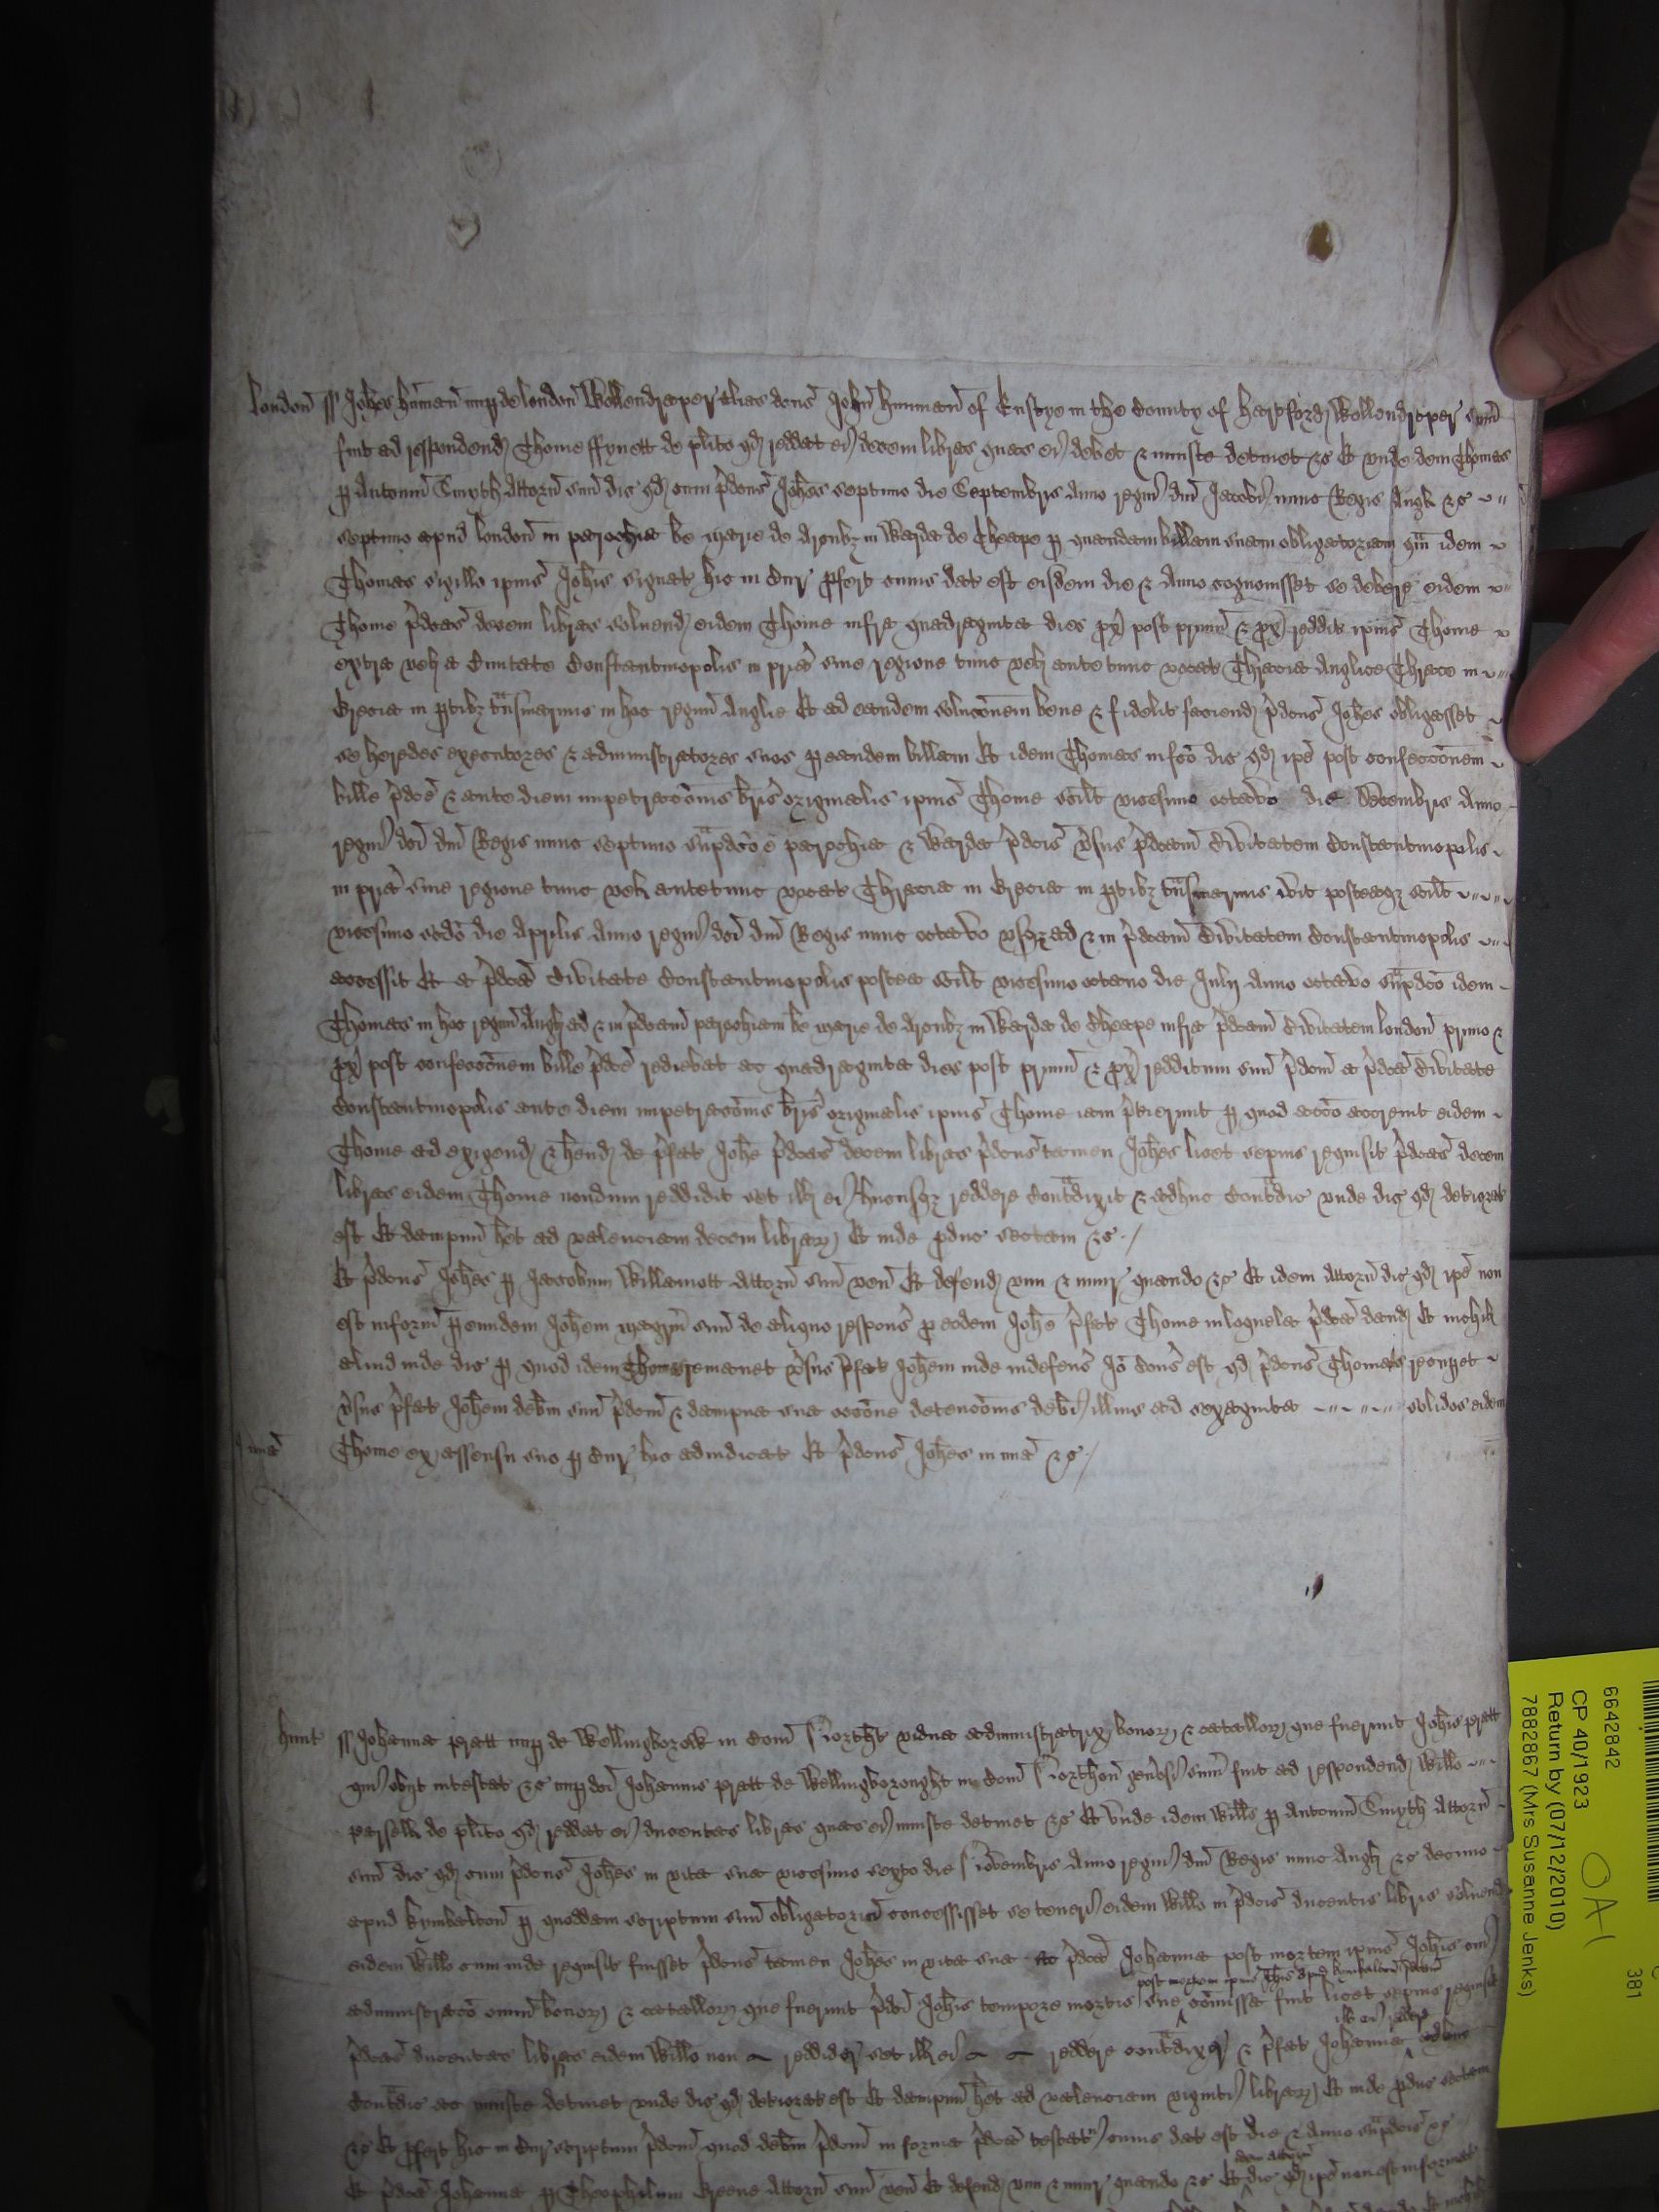 London ss Johes Inman nup de London Wollendraper alias dcus John Inman of in the County of Hartford Wollendraper sum
fuit ad respondend Thome ffynett de plito qd reddat ei decem libras quas ei debet & iniuste detinet &c Et unde idem Thomas
p Antoniu Smyth Attorn suu dic qd cum pdcus Johes septimo die Septembris Anno regni dni Jacobi nunc Regis Angl &c
septimo apud London in parochia be Marie de Arcubz in Warda de Cheape p quandam billam suam obligatoriam qm idem
Thomas sigillo ipius Johis signat hic in Cur pfert cuius dat est eisdem die & Anno cognovisset se debere eidem
Thome pdcas decem libras solvend eidem Thome infra quadraginta dies px post primu & px reddit ipius Thome
extra vel a Civitate Constantinopolis in pria sive regione tunc vel ante tunc vocat Thracia Anglice Thrace in
Grecia in ptibz tnsmarinis in hoc regnu Anglie Et ad eandem soluconem bene & fidelit faciend pdcus Johes obligasset
se heredes executores & administratores suos p eandem billam Et idem Thomas in fco dic qd ipe post confecconem
bille pdce & ante diem impetraconis bris originalis ipius Thome scilt vicesimo octavo die Decembris Anno
regni dci dni Regis nunc septimo supdco e parochia & Warda pdcis vsus pdcam Civitatem Constantinopolis
in pria sive regione tunc vel antetunc vocat Thracia in Grecia in ptibz tnsmarinis ivit posteaqz scilt
vicesimo scdo die Aprilis Anno regni dci dni Regis nunc octavo usqz ad & in pdcam Civitatem Constantinopolis
accessit Et a pdca Civitate Constantinopolis postea scilt vicesimo octavo die Julij Anno octavo supdco idem
Thomas in hoc regnu Angl ad & in pdcam parochiam be Marie de Arcubz in Warda de Cheape infra pdcam Civitatem London primo &
px post confecconem bille pdce rediebat ac quadraginta dies post primu & px redditum suu pdcm a pdca Civitate
Constantinopolis ante diem impetraconis bris originalis ipius Thome iam ptierunt p quod acco accrevit eidem
Thome ad exigend & hend de pfat Johe pdcas decem libras pdcus tamen Johes licet sepius requisit pdcas decem
libras eidem Thome nondum reddidit set ill ei hucusqz reddere contdixit & adhuc contdic unde dic qd deteriorat
est Et dampnu het ad valenciam decem librar Et inde pduc sectam &c
Et pdcus Johes p Jacobum Willamott Attorn suu ven Et defend vim & iniur quando &c Et idem Attorn dic qd ipe non
est inform p eundem Johem magrm suu de aliquo respons p eodem Johe pfat Thome in loquela pdca dand Et nichil
aliud inde dic p quod idem Thomas remanet vsus pfat Johem inde indefens Io cons est qd pdcus Thomas recupet
vsus pfat Johem debm suu pdcm & dampna sua occone detenconis debi illius ad sexaginta solidos eidem
mia Thome ex assensu suo p Cur hic adiudicat Et pdcus Johes in mia &c
Hunt ss Johanna Pratt nup de Wellingborow in Com Northt vidua administratrix bonor & catallor que fuerunt Johis Pratt
qui obijt intestat &c nup dci Johannis Pratt de Wellingborought in Com Northon genosi sum fuit ad respondend Willo
de plito qd reddat ei ducentas libras quas ei iniuste detinet &c Et unde idem Willus p Antoniu Smyth Attorn
suu dic qd cum pdcus Johes in vita sua vicesimo sexto die Novembris Anno regni dni Regis nunc Angl &c decimo
apud Kymbalton p quoddam scriptum suu obligatoriu concessisset se teneri eidem Willo in pdcis ducentis libris solvend
eidem Willo cum inde requisit fuisset pdcus tamen Johes in vita sua ac pdca Johanna post mortem ipius Johis cui
post mortem ipius Johis apud Kymbalton
administraco omniu bonor & catallor que fuerunt pdci Johis tempore mortis sue comissa fuit licet sepius requisit
ill ei reddere
pdcas ducentas libras eidem Willo non reddider set ill ei reddere contdixer & pfat Johanna adhuc
contdic ac iniuste detinet unde dic qd deteriorat est Et dampnu het ad valenciam viginti librar Et inde pduc sectam
&c Et pfert hic in Cur scriptum pdcm quod debm pdcm in forma pdca testat cuius dat est die & Anno supdcis &c
idem attorn
Et pdca Johanna p Theophilum Greene Attorn suu ven Et defend vim & iniur quando &c Et dic qd ipe non est informat
6642842
CP 40/1923
Return by (07/12/2010)
7882867 (Mrs Susanne Jenks)
381